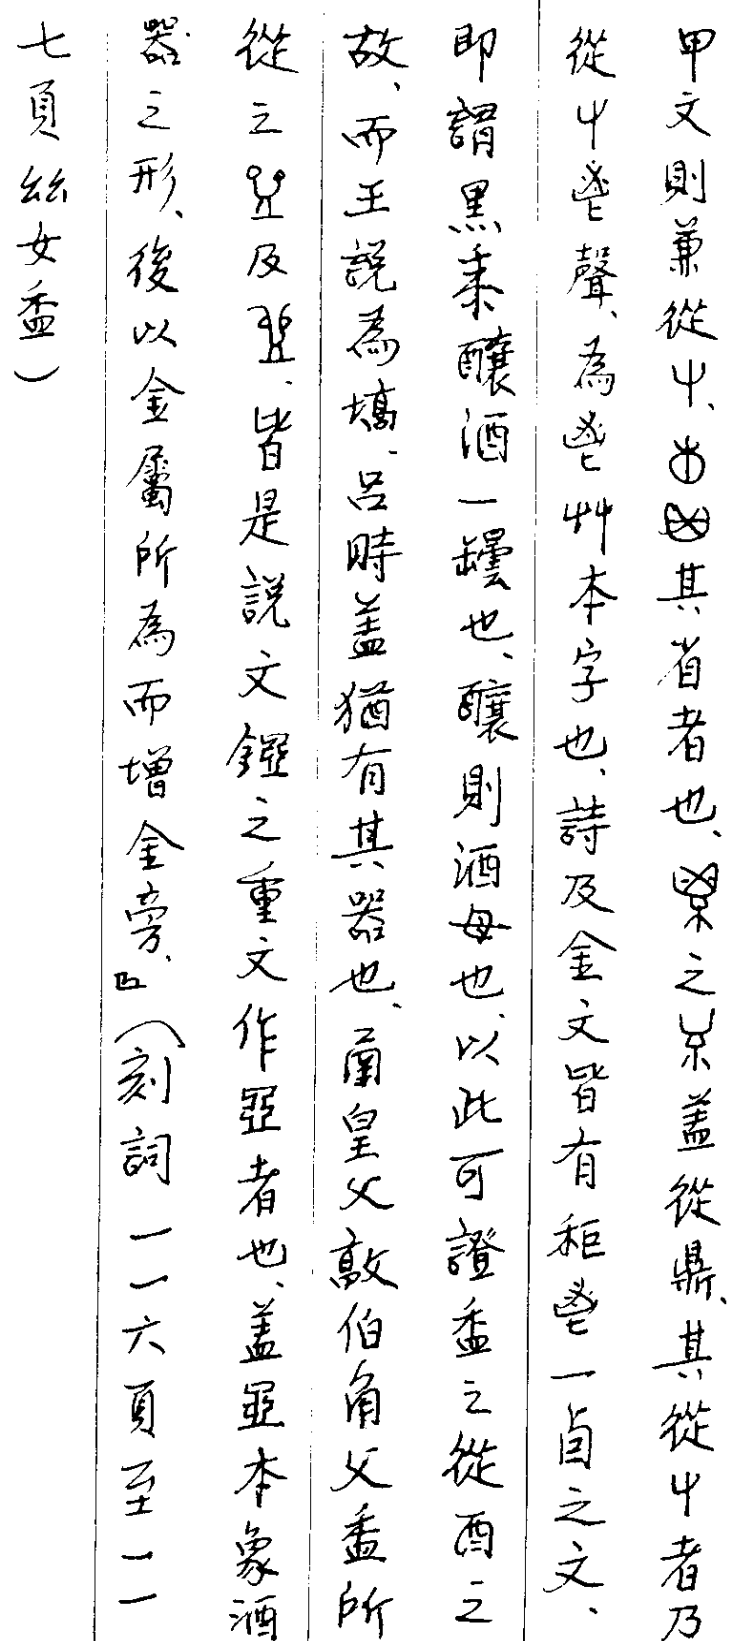 甲文則兼從屮、其省者也、之蓋從鼎、其從屮者乃
從屮鬯聲、為鬯艸本字也、詩及金文皆有秬鬯一卣之文、
即謂黑黍釀酒一罎也、釀則酒母也、以此可證盉之從酉之
故、而王說為墧、呂時蓋猶有其器也、圅皇父敦伯角父盉所
從之及、皆是說文鑃之重文作者也、蓋本象酒
器之形、後以金屬所為而增金旁、』（刻詞一一六頁至一一
七頁絲女盉）